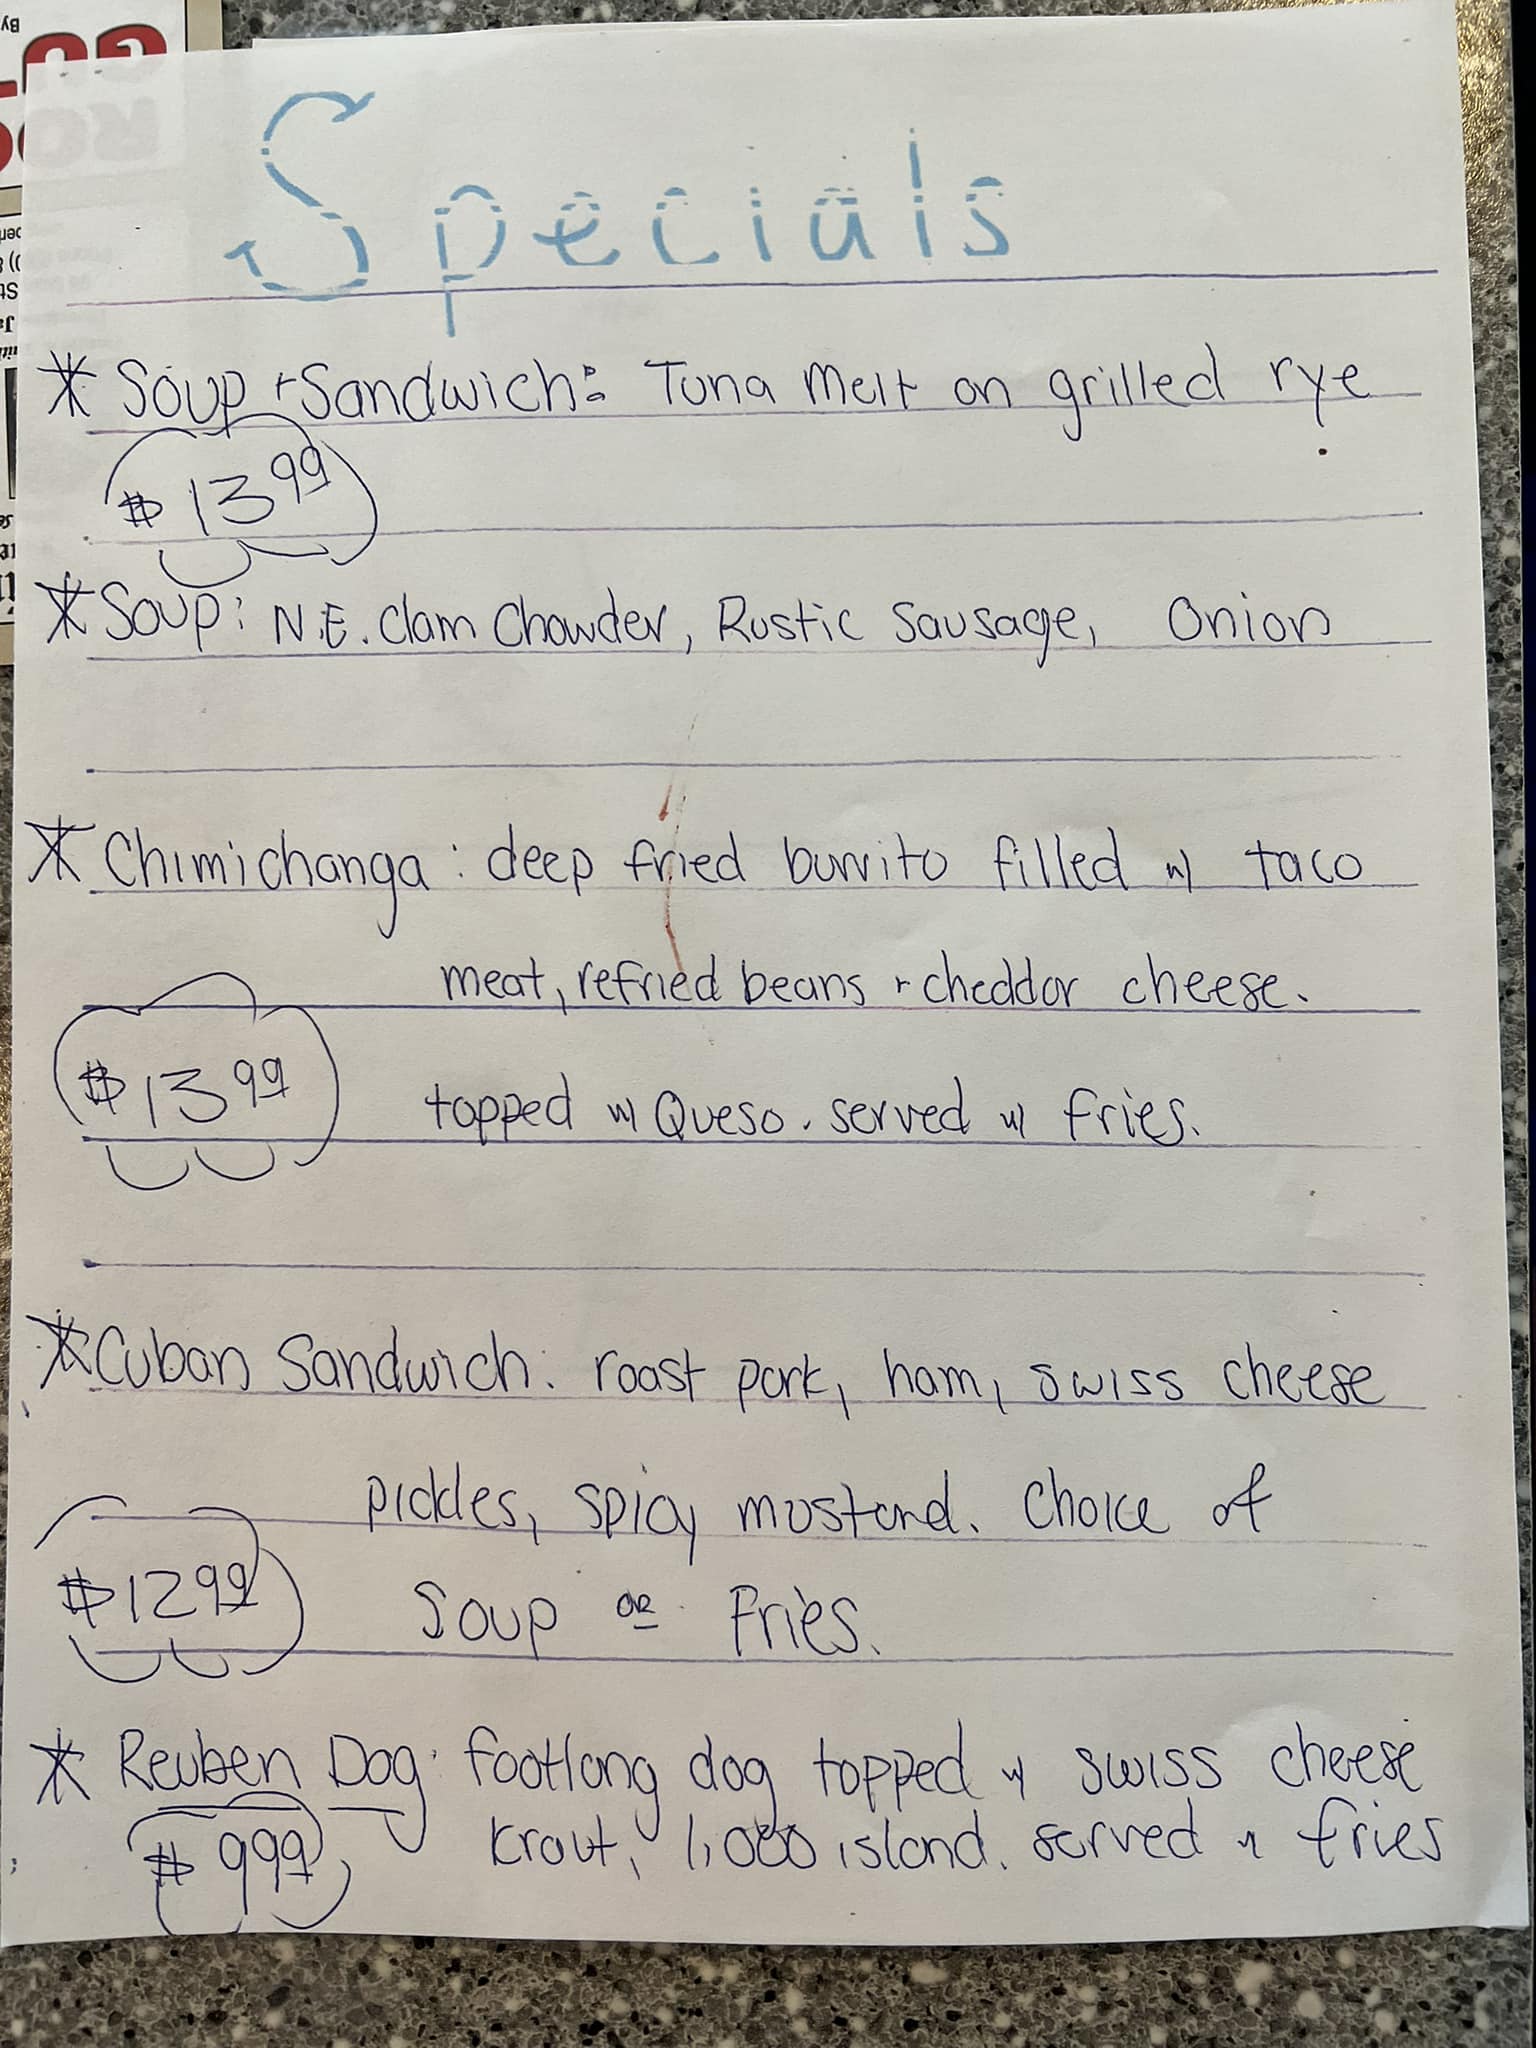 Specials
* Soup + Sandwich: Tuna Melt on grilled rye
$13.99
* Soup: N.E. Clam Chowder, Rustic Sausage, Onion
* Chimichanga: deep fried burrito filled w/ taco
meat, refried beans + cheddar cheese.
$13.99
topped w/ Queso. served w/ fries.
* Cuban Sandwich: roast pork, ham, swiss cheese
pickles, spicy mustard. Choice of
$12.99
Soup or Fries.
* Reuben Dog: footlong dog topped w/ swiss cheese
$9.99
kraut, 1,000 island. served w/ fries